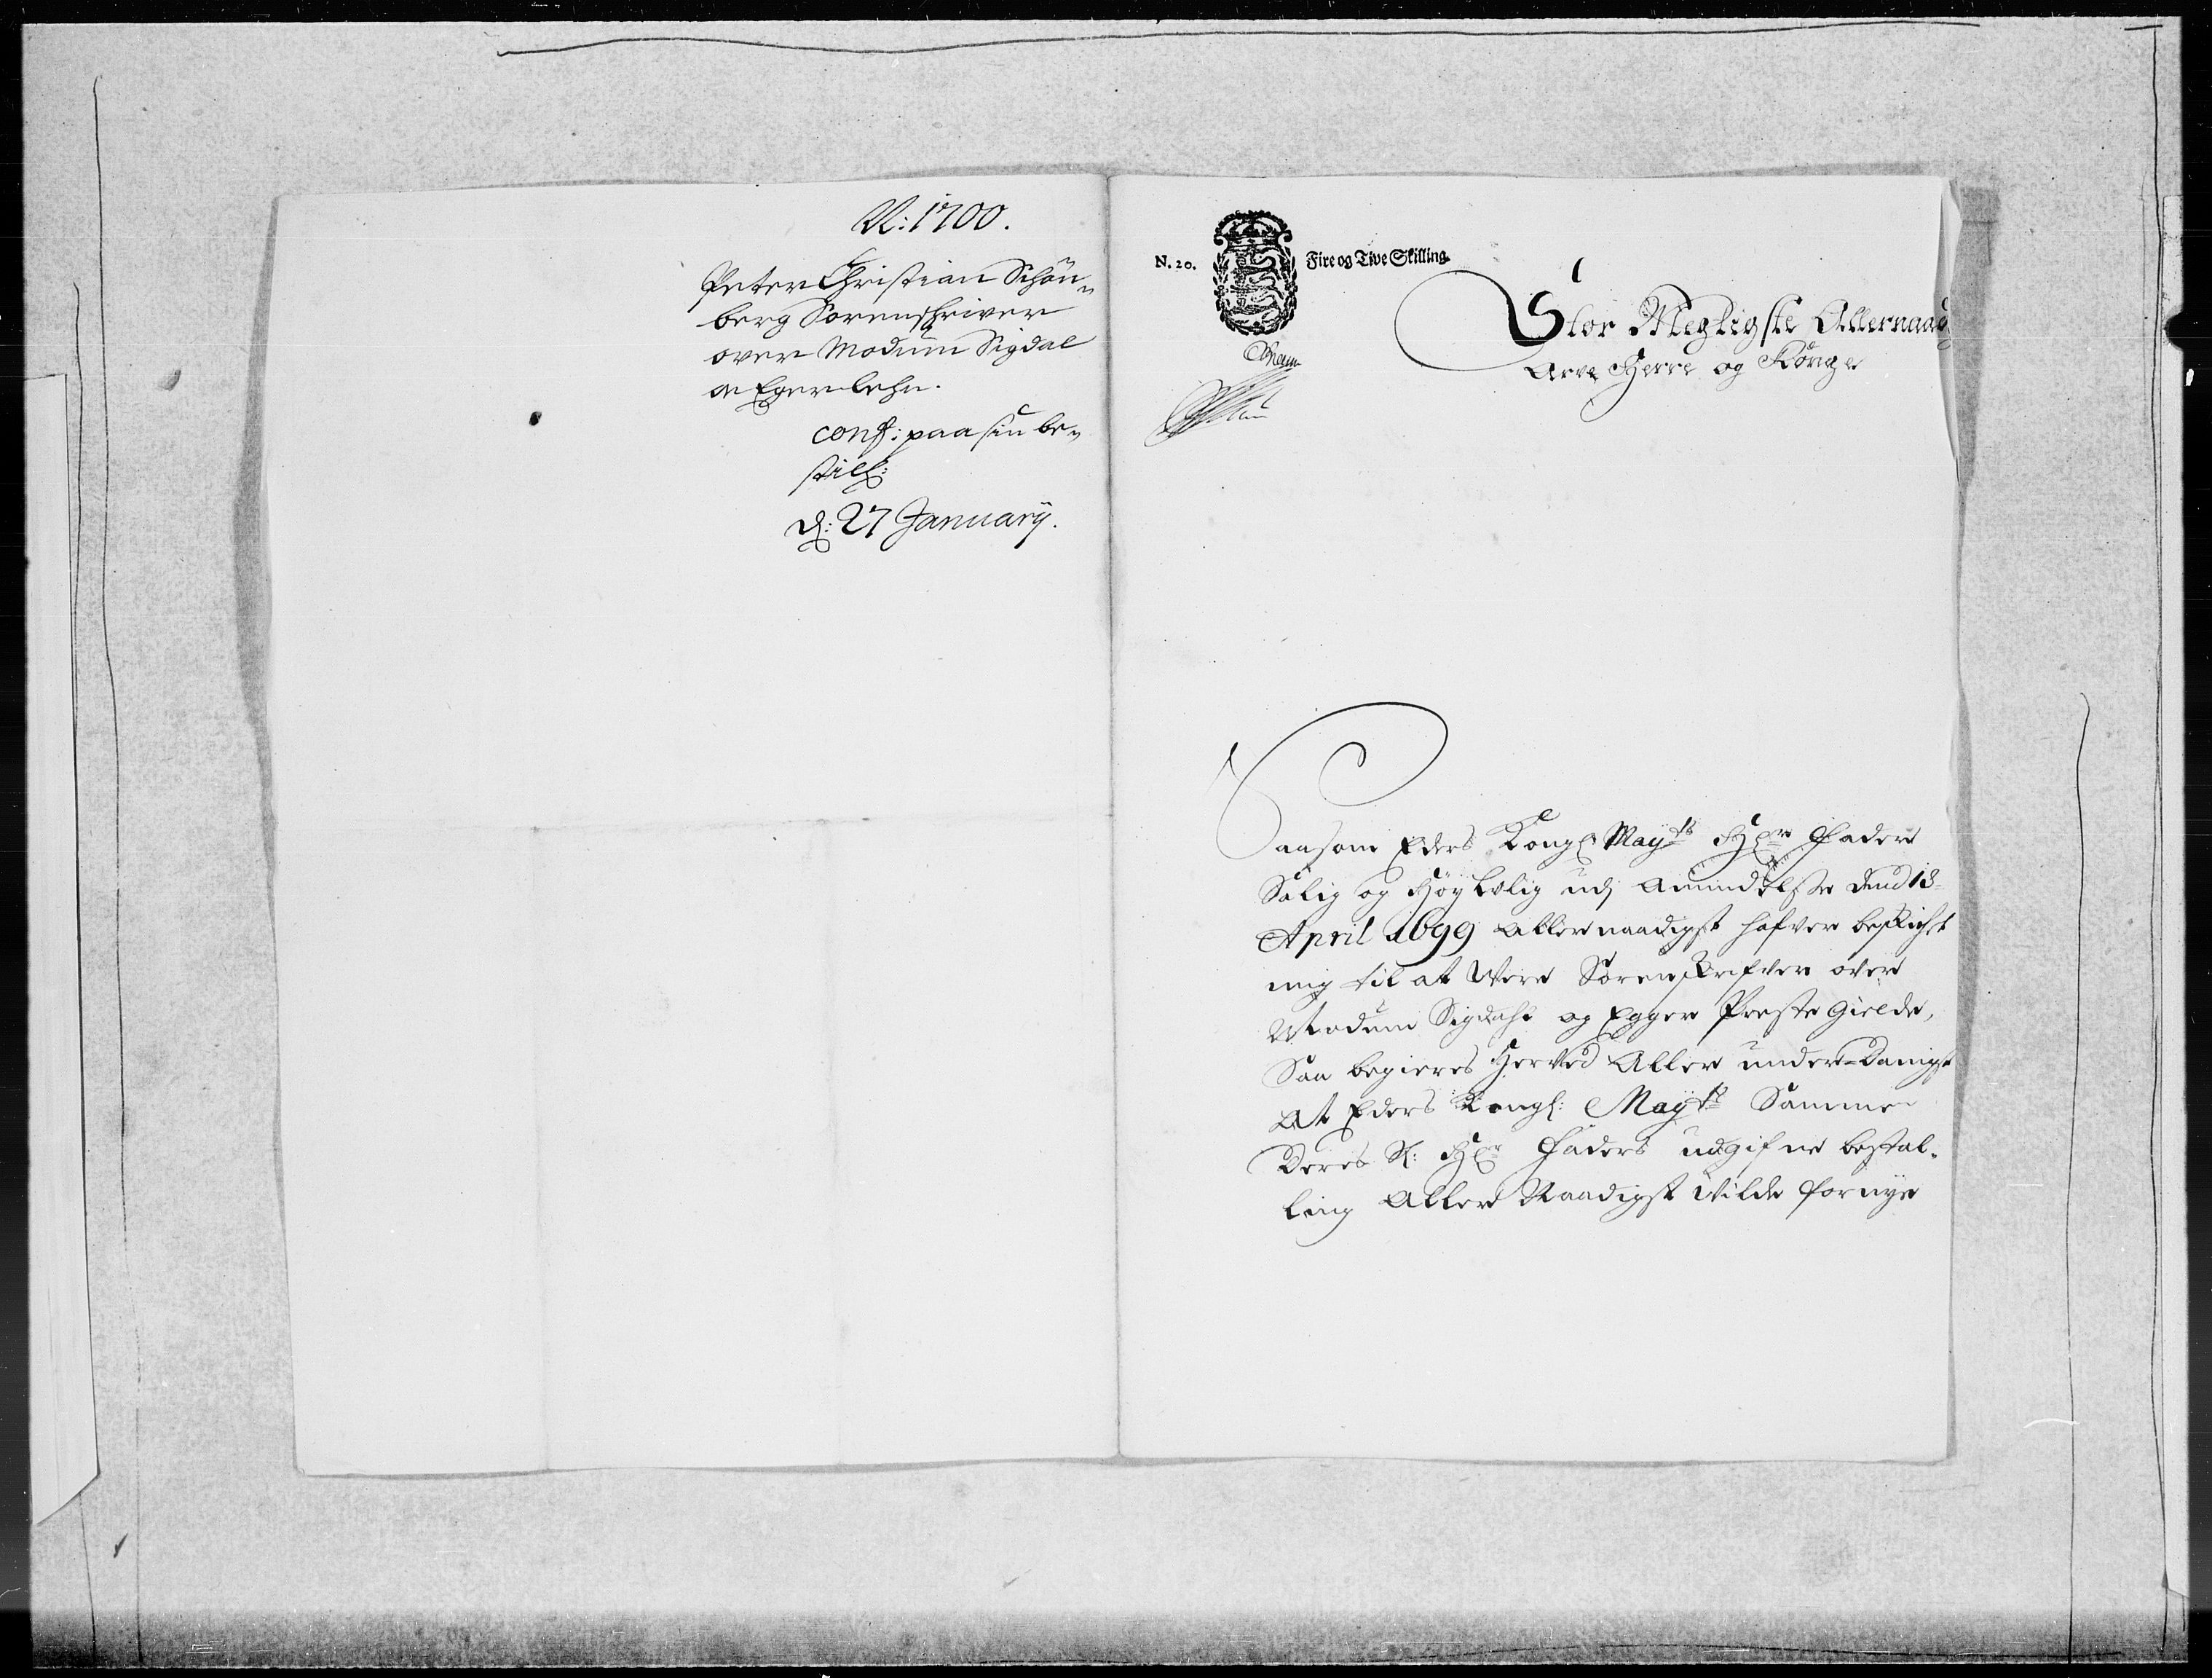 N: 1700.
Peter Christian Schön-
berg Sorenschriver
over Modum Sigdal
oc Eger lehn.
conf: paa sin be-
still:
d: 27 January.
N. 20. Fire og Tive Skilling.
Stor Megtigste Allernaad
Arve Herre og Konge
Saasom Eders Kongl Mayts Hr Fader
Salig og Höyloflig udj Amindelse dend 18
April 1699 Allernaadigst hafver beskicht
mig til at Were Sorenskrifver over
Modum Sigdahl og Egger Preste gielde,
Saa begieres Herved Aller under-Danigst
At Eders Kongl: Mayts Samme
Deres Sl: Hr Faders udgifne bestal-
ling Aller Naadigst Wilde fornye